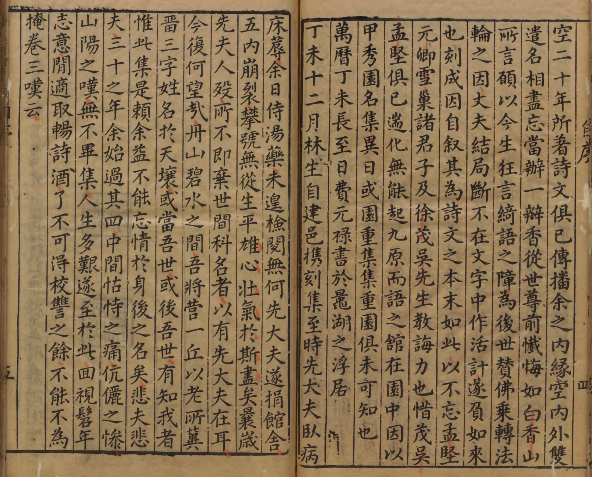 空二十年所著詩文俱已傳播余之内緣空内外雙
遣名相盡忘當辦一瓣香從世尊前懺悔如白香山
所言願以今生狂言綺語之障為後世贊佛乘轉法
輪之因丈夫結局斷不在文字中作活計遂負如來
也刻成因自叙其為詩文之本末如此以不忘孟堅
元卿雪巢諸君子及徐茂吳先生教誨力也惜茂吳
孟堅俱已遷化無能起九原而語之館在園中因以
甲秀園名集異日或園重集集重園俱未可知也
萬曆丁未長至日費元祿書於鼂湖之浮居
丁未十二月林生自建邑携刻集至時先大夫臥病
床蓐余日侍湯藥未遑檢閱無何先大夫遂捐館舍
五内崩裂攀號無從生平雄心壯氣於斯盡矣曩歲
先夫人殁所不即棄世間科名者以有先大夫在耳
今復何望哉丹山碧水之間吾將營一丘以老所冀
畱三字姓名於天壤或當吾世或後吾世有知我者
惟此集是賴余益不能忘情於身後之名矣悲夫悲
夫三十之年余始過其四中間怙恃之痛伉儷之慘
山陽之嘆無不畢集人生多艱遂至於此回視髫年
志意閒適取暢詩酒了不可得校讐之餘不能不為
掩卷三嘆云
四
五